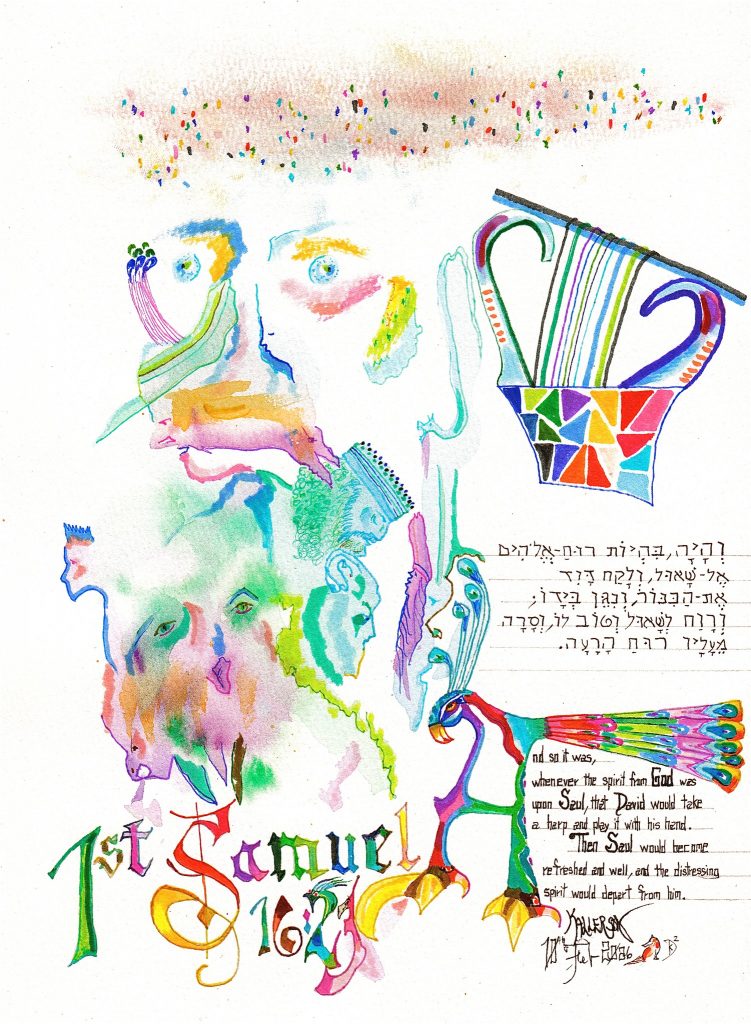 וְהָיָה, בִּהְיוֹת רוּחַ-אֱלֹהִים
אֶל-שָׁאוּל, וְלָקַח דָּוִד
אֶת-הַכִּנּוֹר, וְנִגֵּן בְּיָדוֹ,
וְרָוַח לְשָׁאוּל וְטוֹב לוֹ, וְסָרָה
מֵעָלָיו רוּחַ הָרָעָה.
And so it was,
whenever the spirit from God was
upon Saul, that David would take
a harp and play it with his hand.
Then Saul would become
refreshed and well, and the distressing
spirit would depart from him.
1st Samuel
16:23
10th 2006